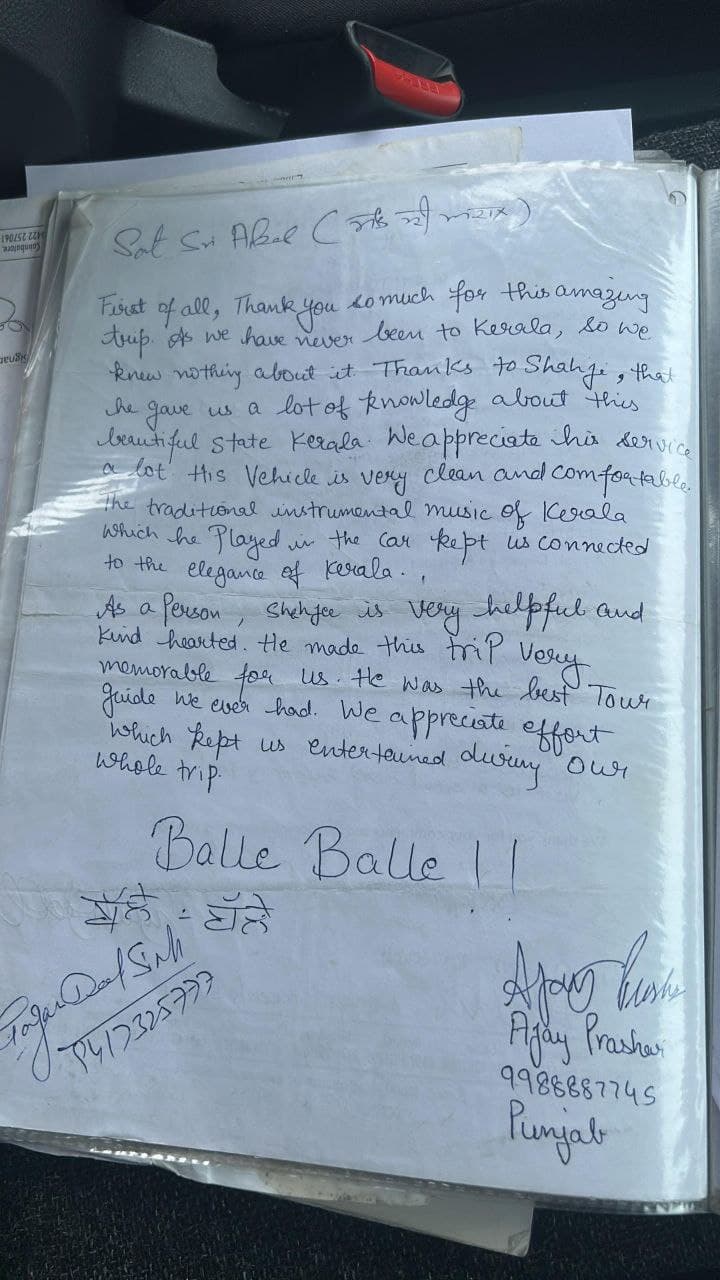 Sat Sri Akal (ਸਤਿ ਸ੍ਰੀ ਅਕਾਲ)
First of all, Thank you so much for this amazing
trip. As we have never been to Kerala, so we
knew nothing about it. Thanks to Shahji, that
he gave us a lot of knowledge about this
beautiful state Kerala. We appreciate his service
a lot. His Vehicle is very clean and comfortable.
The traditional instrumental music of Kerala
which he Played in the car kept us connected
to the elegance of Kerala.
As a Person, Shahjee is very helpful and
kind hearted. He made this triP very
memorable for us. He was the best Tour
guide we ever had. We appreciate effort
which kept us entertained during our
whole trip.
Balle Balle !!
ਬੱਲੇ - ਬੱਲੇ
9417325777
Ajay Prashar
9988887745
Punjab
Coimbatore.
0422 257061